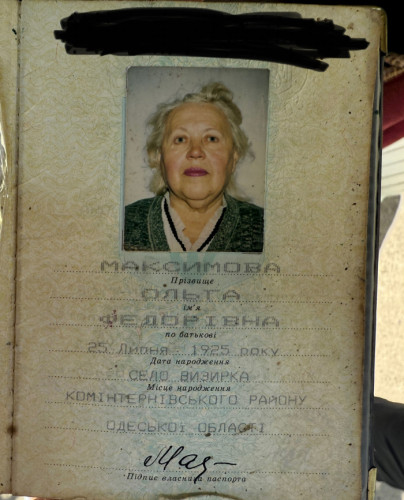 МАКСИМОВА
Прізвище
ОЛЬГА
ім'я
ФЕДОРІВНА
по батькові
25 Липня 1925 року
Дата народження
СЕЛО ВИЗИРКА
Місце народження
КОМІНТЕРНІВСЬКОГО РАЙОНУ
ОДЕСЬКОЇ ОБЛАСТІ
Підпис власника паспорта